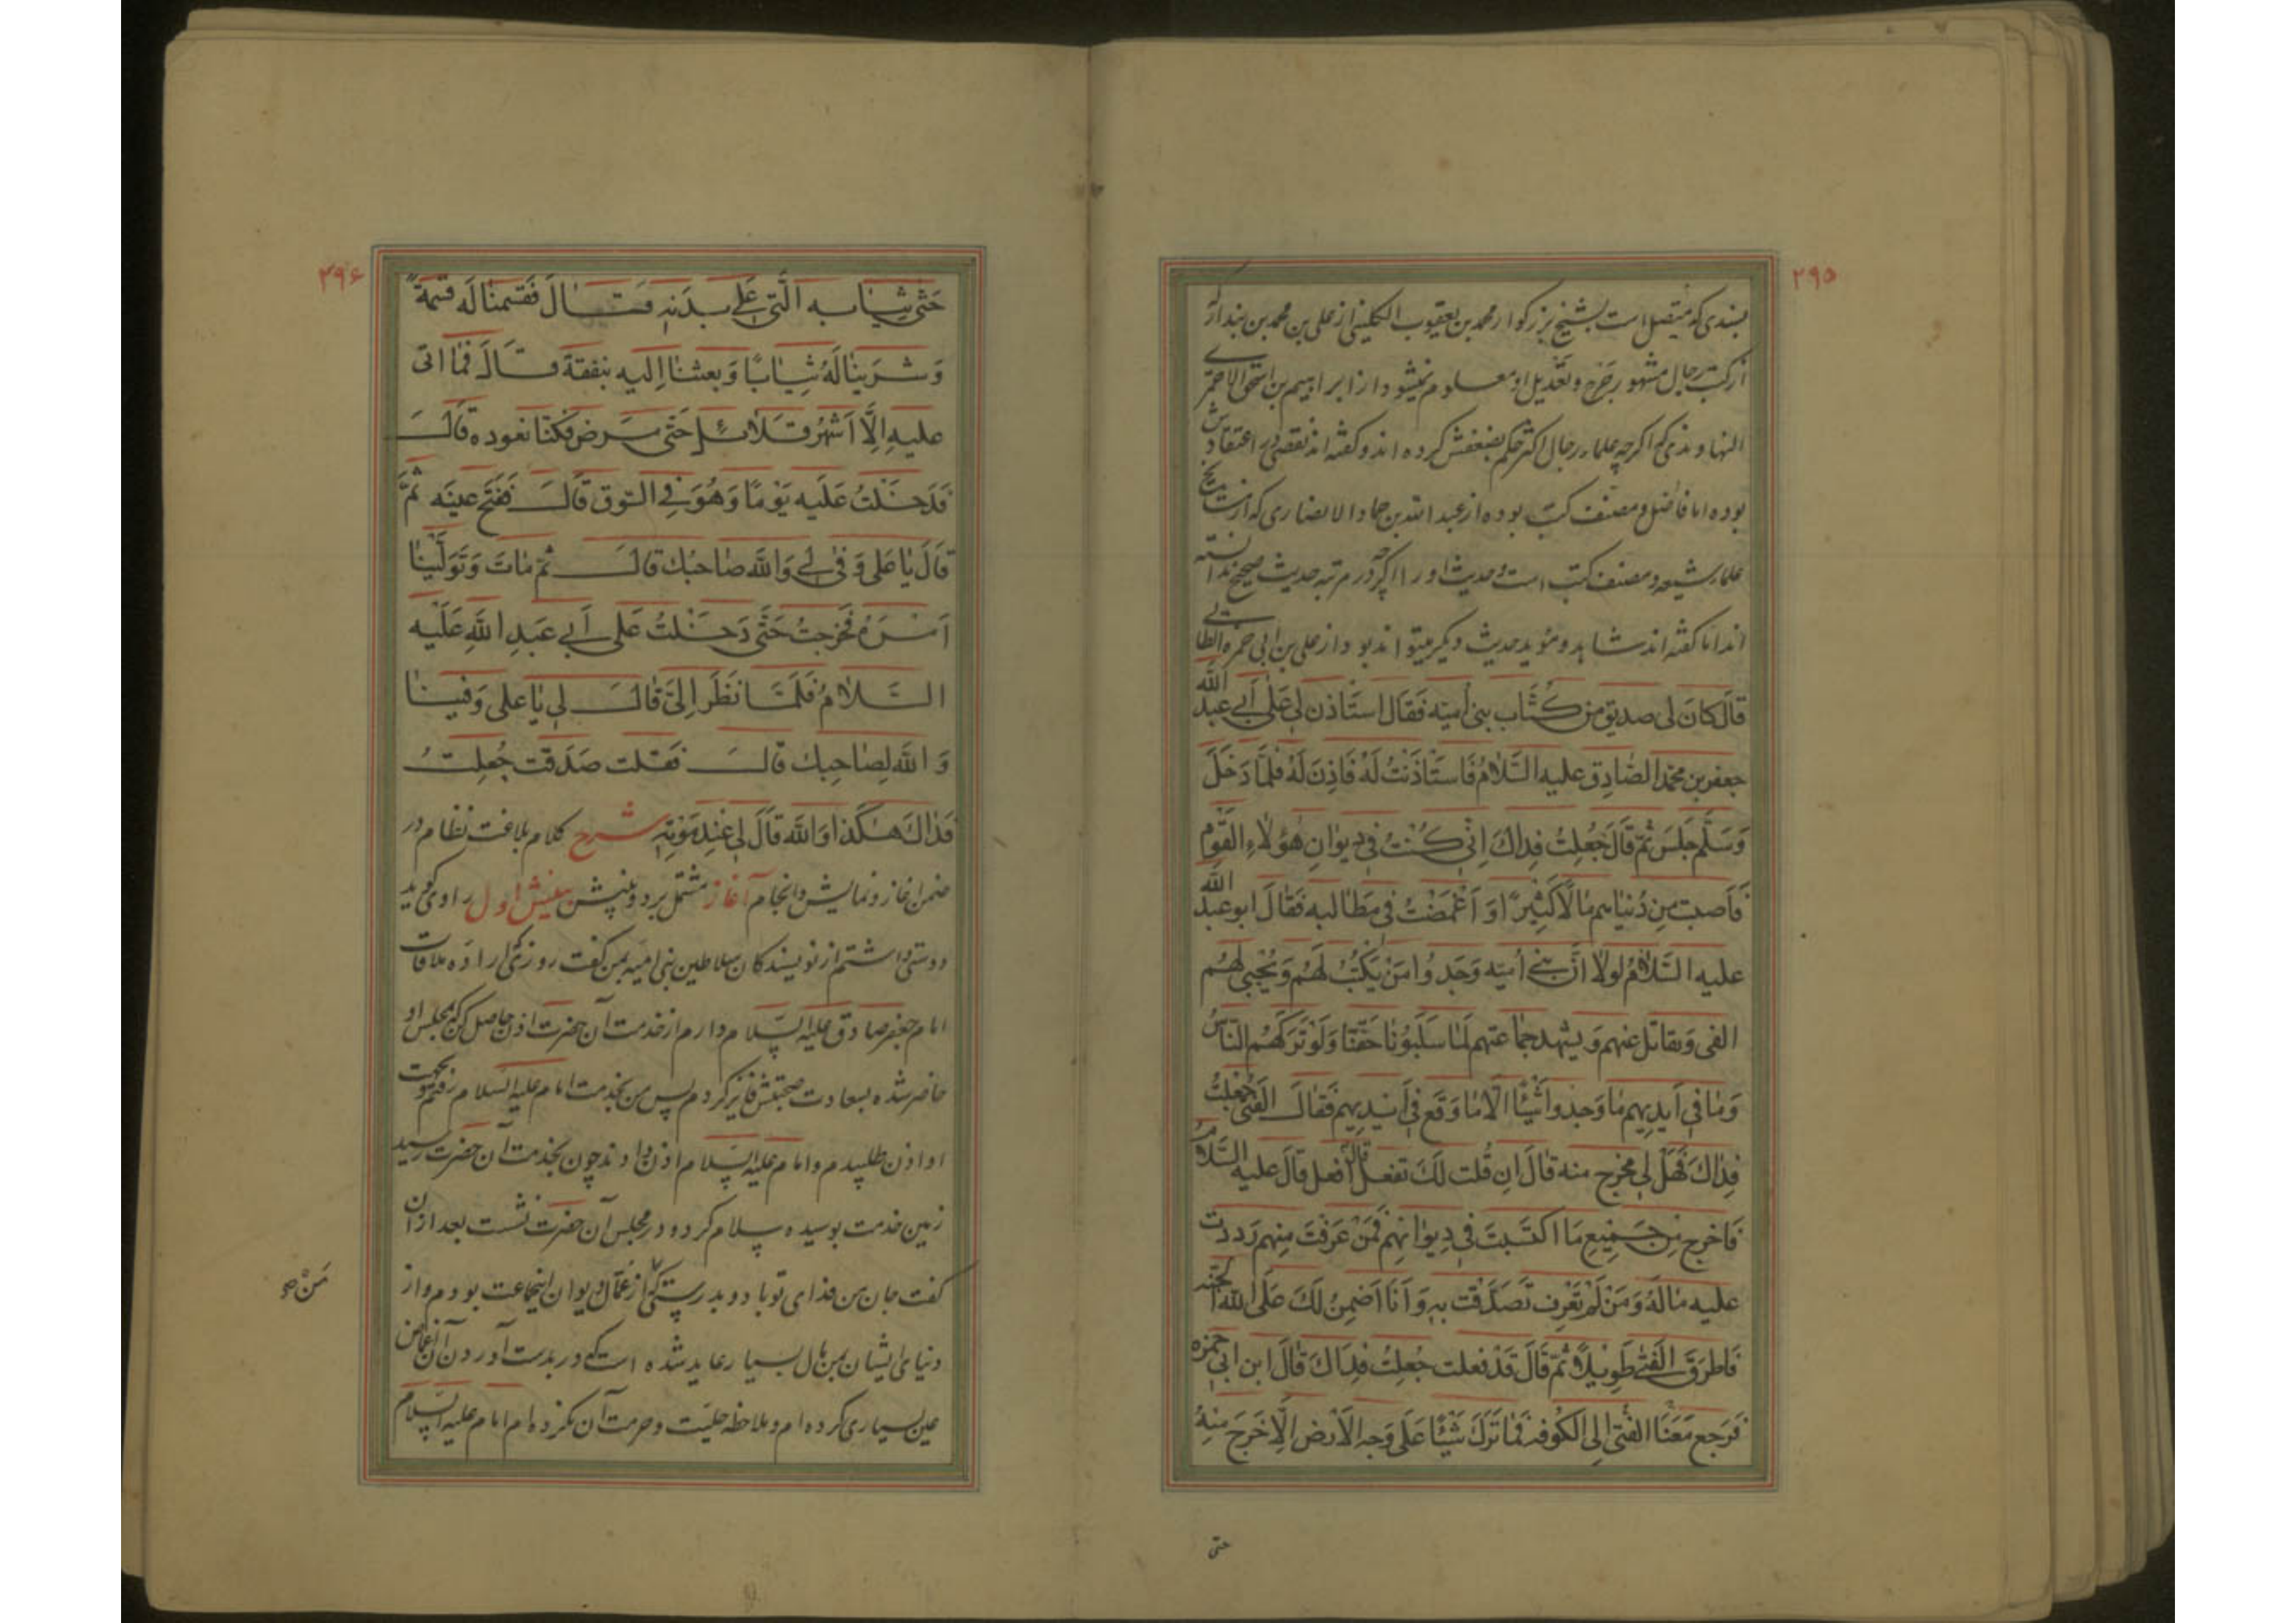 ۲۹۵
بسندی که متصل است بشیخ بزرکوار محمد بن یعقوب الکلینی از علی بن محمد بن بندار که
از کتب رجال مشهور جرح و تعدیل او معلوم نمیشود از ابراهیم بن اسحق الاحمری
النهاوندی که اکرچه علماء رجال اکثر حکم بضعفش کرده اند و کفته اند نقصی در اعتقادش
بوده اما فاضل و مصنف کتب بوده از عبد الله بن حماد الانصاری که از مشایخ
علماء شیعه و مصنف کتب است و حدیث او را اکرچه در مرتبه حدیث صحیح ندانسته
اند اما کفته اند شاهد و مؤید حدیث دیکر میتواند بود از علی بن ابی حمزه
قَالَ كَانَ لی صدیق من كُتّاب بنی اُمیّه فَقَال استَاذن لی عَلٰی أَبی عبد الله
جعفر بن محمد الصّادِق علیه السَّلامُ فَاستَاذَنتُ لَهُ فَاذِنَ لَهُ فلمَّا دَخَلَ
وَسَلَّم جلَسَ ثمّ قالَ جُعِلتُ فِداكَ اِنّی كُنتُ فی دیوانِ هٰؤُلاءِ القَوْم
فَاَصبت مِن دُنیاهم مٰالاً كَثیرً او اَغْمَضتُ فی مَطَالبه فَقالَ ابو عبد الله
علیه السَّلامُ لولا انّ بنی اُمیّه وَجَدُوا مَنْ یَكتُبُ لَهُم وَیُجبی لهُم
الفی وَیقاتل عنهم وَ یشهد جمٰاعتهم لَمٰا سَلَبُونٰا حَقّنَا وَلَوْ تَرَكَهُم النّاسُ
وَمٰا فی اَیدِیهم مٰا وَجدوا شَیئًا الّا مٰا وَقَعَ فی اَیدیهم فقالَ الفَتی جُعِلتُ
فِداكَ فَهَلْ لی مخرج منه قالَ اِن قُلت لَكَ تفعل قال اَفعل قَالَ علیه السَّلامُ
فَاخرج مِن جَمیِعِ مَا اكتَسَبتَ فی دِیوٰانِهم فَمَنْ عَرَفتَ مِنهم رَددت
علیه مٰالَهُ وَمَنْ لَمْ تَعْرِف تَصَدَّقت بِه وَ اَنَا اَضمِنُ لَكَ عَلَی الله الجنّه
فَاطرَقَ الفَتیٰ طَویلًا ثمّ قَالَ قَدْ فعلت جُعِلتُ فِداكَ قالَ ابن ابی حمزه
فَرَجع مَعَنَا الفَتی اِلی الكوُفه فَمٰا تَرَكَ شَیئًا عَلی وَجهِ الاَرض اِلّا خَرَجَ مِنهُ
حتی
۲۹۶
حَتّی ثِیٰابه الَّتی عَلی بدَنِه قٰالَ فَقَسمنا لَه قِسمَةً
وَشَرَینٰا لَهُ ثِیٰابًا وَبَعثنا اِلیه بنفقة قالَ فَمٰا اتی
علیه اِلَّا اَشهُرُ قَلائِل حَتّی مَرض فكنّا نعوده قالَ
فَدَخَلتُ عَلَیه یَومًا وَهُوَ فی السّوق قالَ فَفَتَح عینَه ثمَّ
قَالَ یٰا عَلی وَفیٰ لی وَالله صٰاحبُك قالَ ثمّ مٰات وَتَوَلَّینٰا
اَمرَهُ فَخَرجتُ حَتّی دَخَلتُ عَلی اَبی عَبدِ اللهِ عَلَیْه
السَّلامُ فَلَمَّا نَظَرَ اِلیَّ قالَ لی یٰا علی وَفینٰا
وَ الله لِصٰاحِبِك قالَ فَقلت صَدَقت جُعِلتُ
فَدَاكَ هٰكَذا وَ الله قَالَ لی عِندَ مَوتِه شرح کلام بلاغت نظام در
ضمن اغاز و نمایش و انجام آغاز مشتمل بر دو بینش بینش اول راوی کوید
دوستی داشتم از نویسندکان سلاطین بنی امیه بمن کفت روزی که اراده ملاقات
امام جعفر صادق علیه السّلام دارم از خدمت آن حضرت اذن حاصل کن که بمجلس او
حاضر شده بسعادت صحبتش فایز کردم پس من بخدمت امام علیه السلام رفتم و بجهت
او اذن طلبیدم و امام علیه السّلام اذن دادند چون بخدمت آن حضرت رسید
زمین خدمت بوسیده سلام کرد و در مجلس آن حضرت نشست بعد از ان
کفت جان من فدای تو باد و بدرستی که از عمّال دیوان اینجماعت بودم و از
دنیای ایشان بمن مال بسیار عاید شده است که در بدست آوردن آن اغماض
عین بسیاری کرده ام و ملاحظه حلیّت و حرمت آن نکرده ام امام علیه السّلام
مَنْ صح